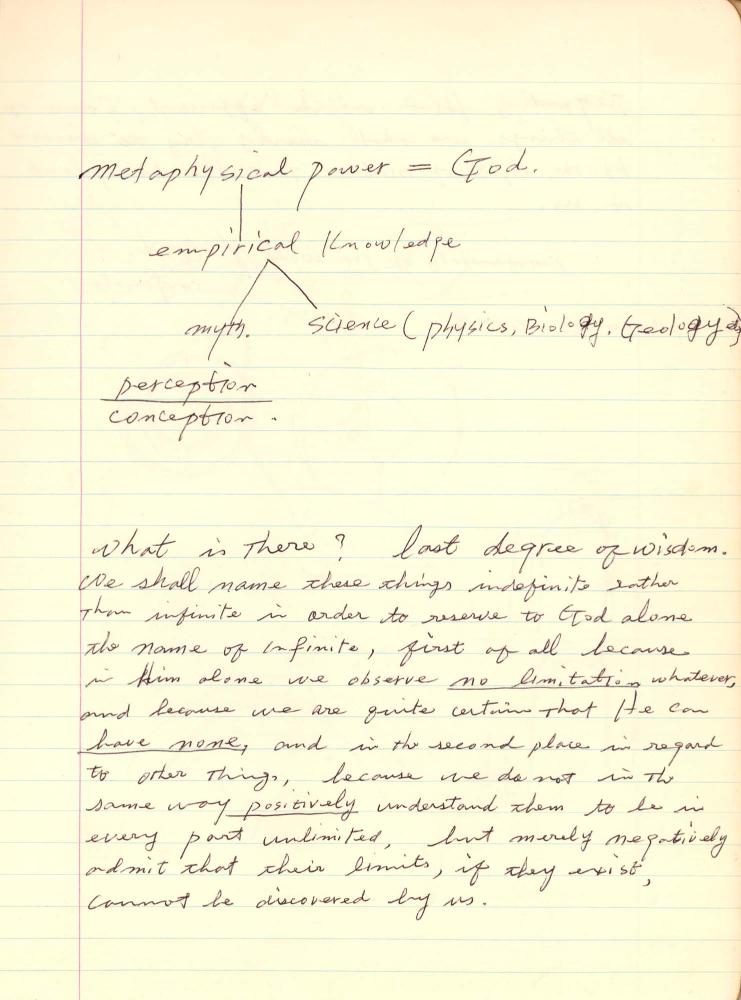 metaphysical power = God.
empirical Knowledge
myth. science (physics, Biology, Geology
perception
conception.
What is there? last degree of wisdom.
We shall name these things indefinite rather
than infinite in order to reserve to God alone
the name of Infinite, first of all because
in Him alone we observe no limitation whatever,
and because we are quite certain that He can
have none, and in the second place in regard
to other things, because we do not in the
same way positively understand them to be in
every part unlimited, but merely negatively
admit that their limits, if they exist,
cannot be discovered by us.